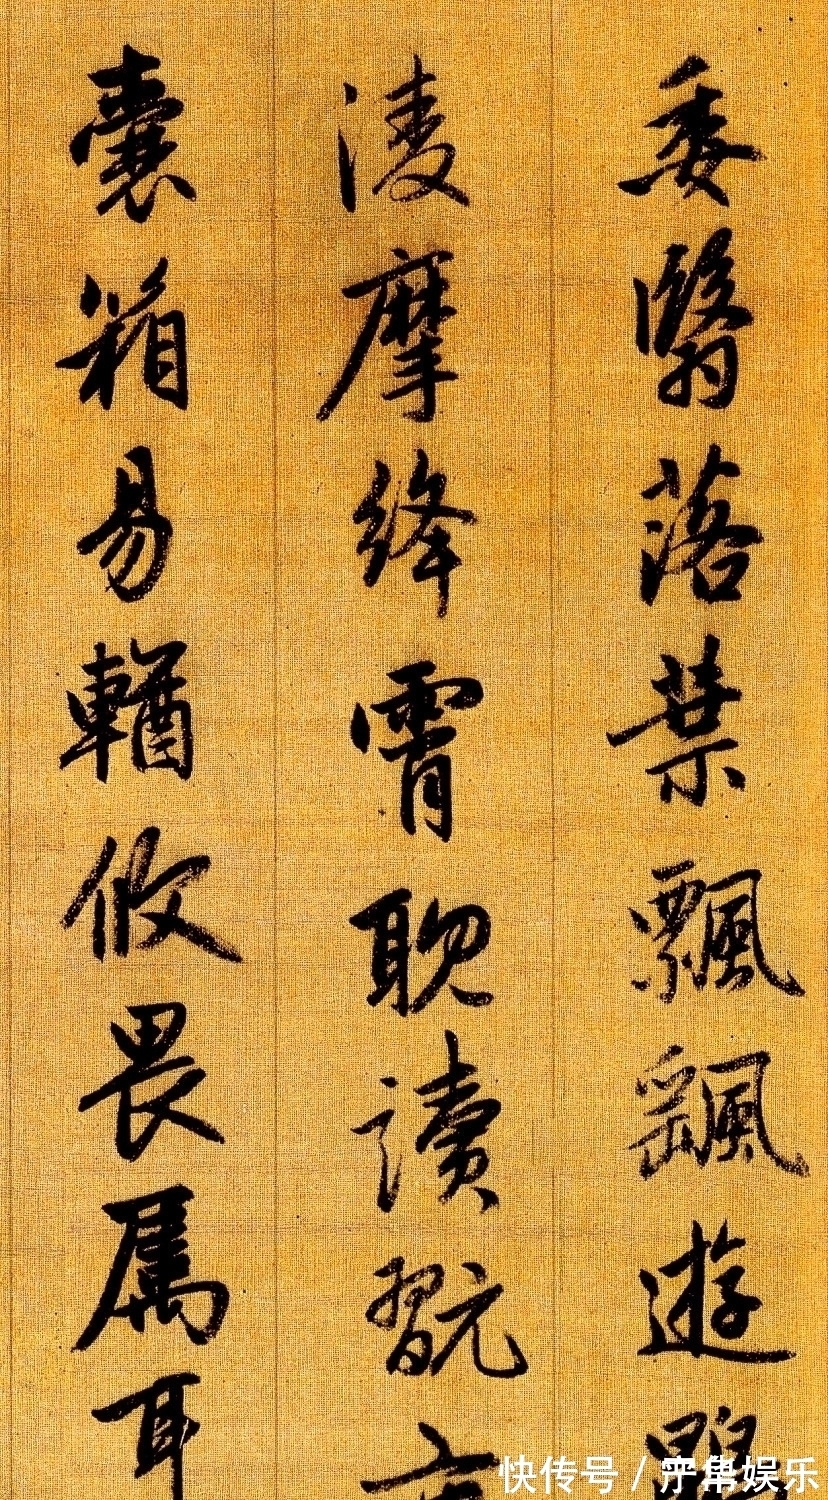 委翳落葉飄颻遊鵾
淩摩絳霄耽讀翫市
囊箱易輶攸畏属耳
快传号 / 亓帛娱乐